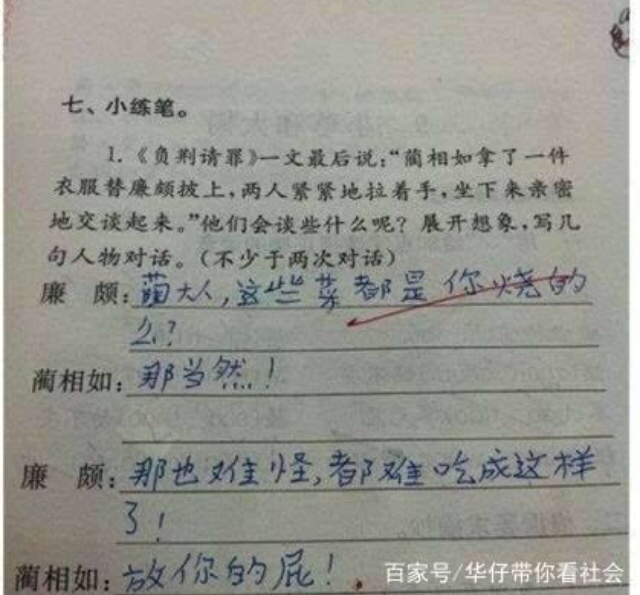 七、小练笔。
1.《负荆请罪》一文最后说:“蔺相如拿了一件
衣服替廉颇披上,两人紧紧地拉着手,坐下来亲密
地交谈起来。”他们会谈些什么呢?展开想象,写几
句人物对话。(不少于两次对话)
廉 颇:蔺大人,这些菜都是你烧的
么?
蔺相如:那当然!
廉 颇:那也难怪,都难吃成这样
了!
蔺相如:放你的屁!
百家号/华仔带你看社会